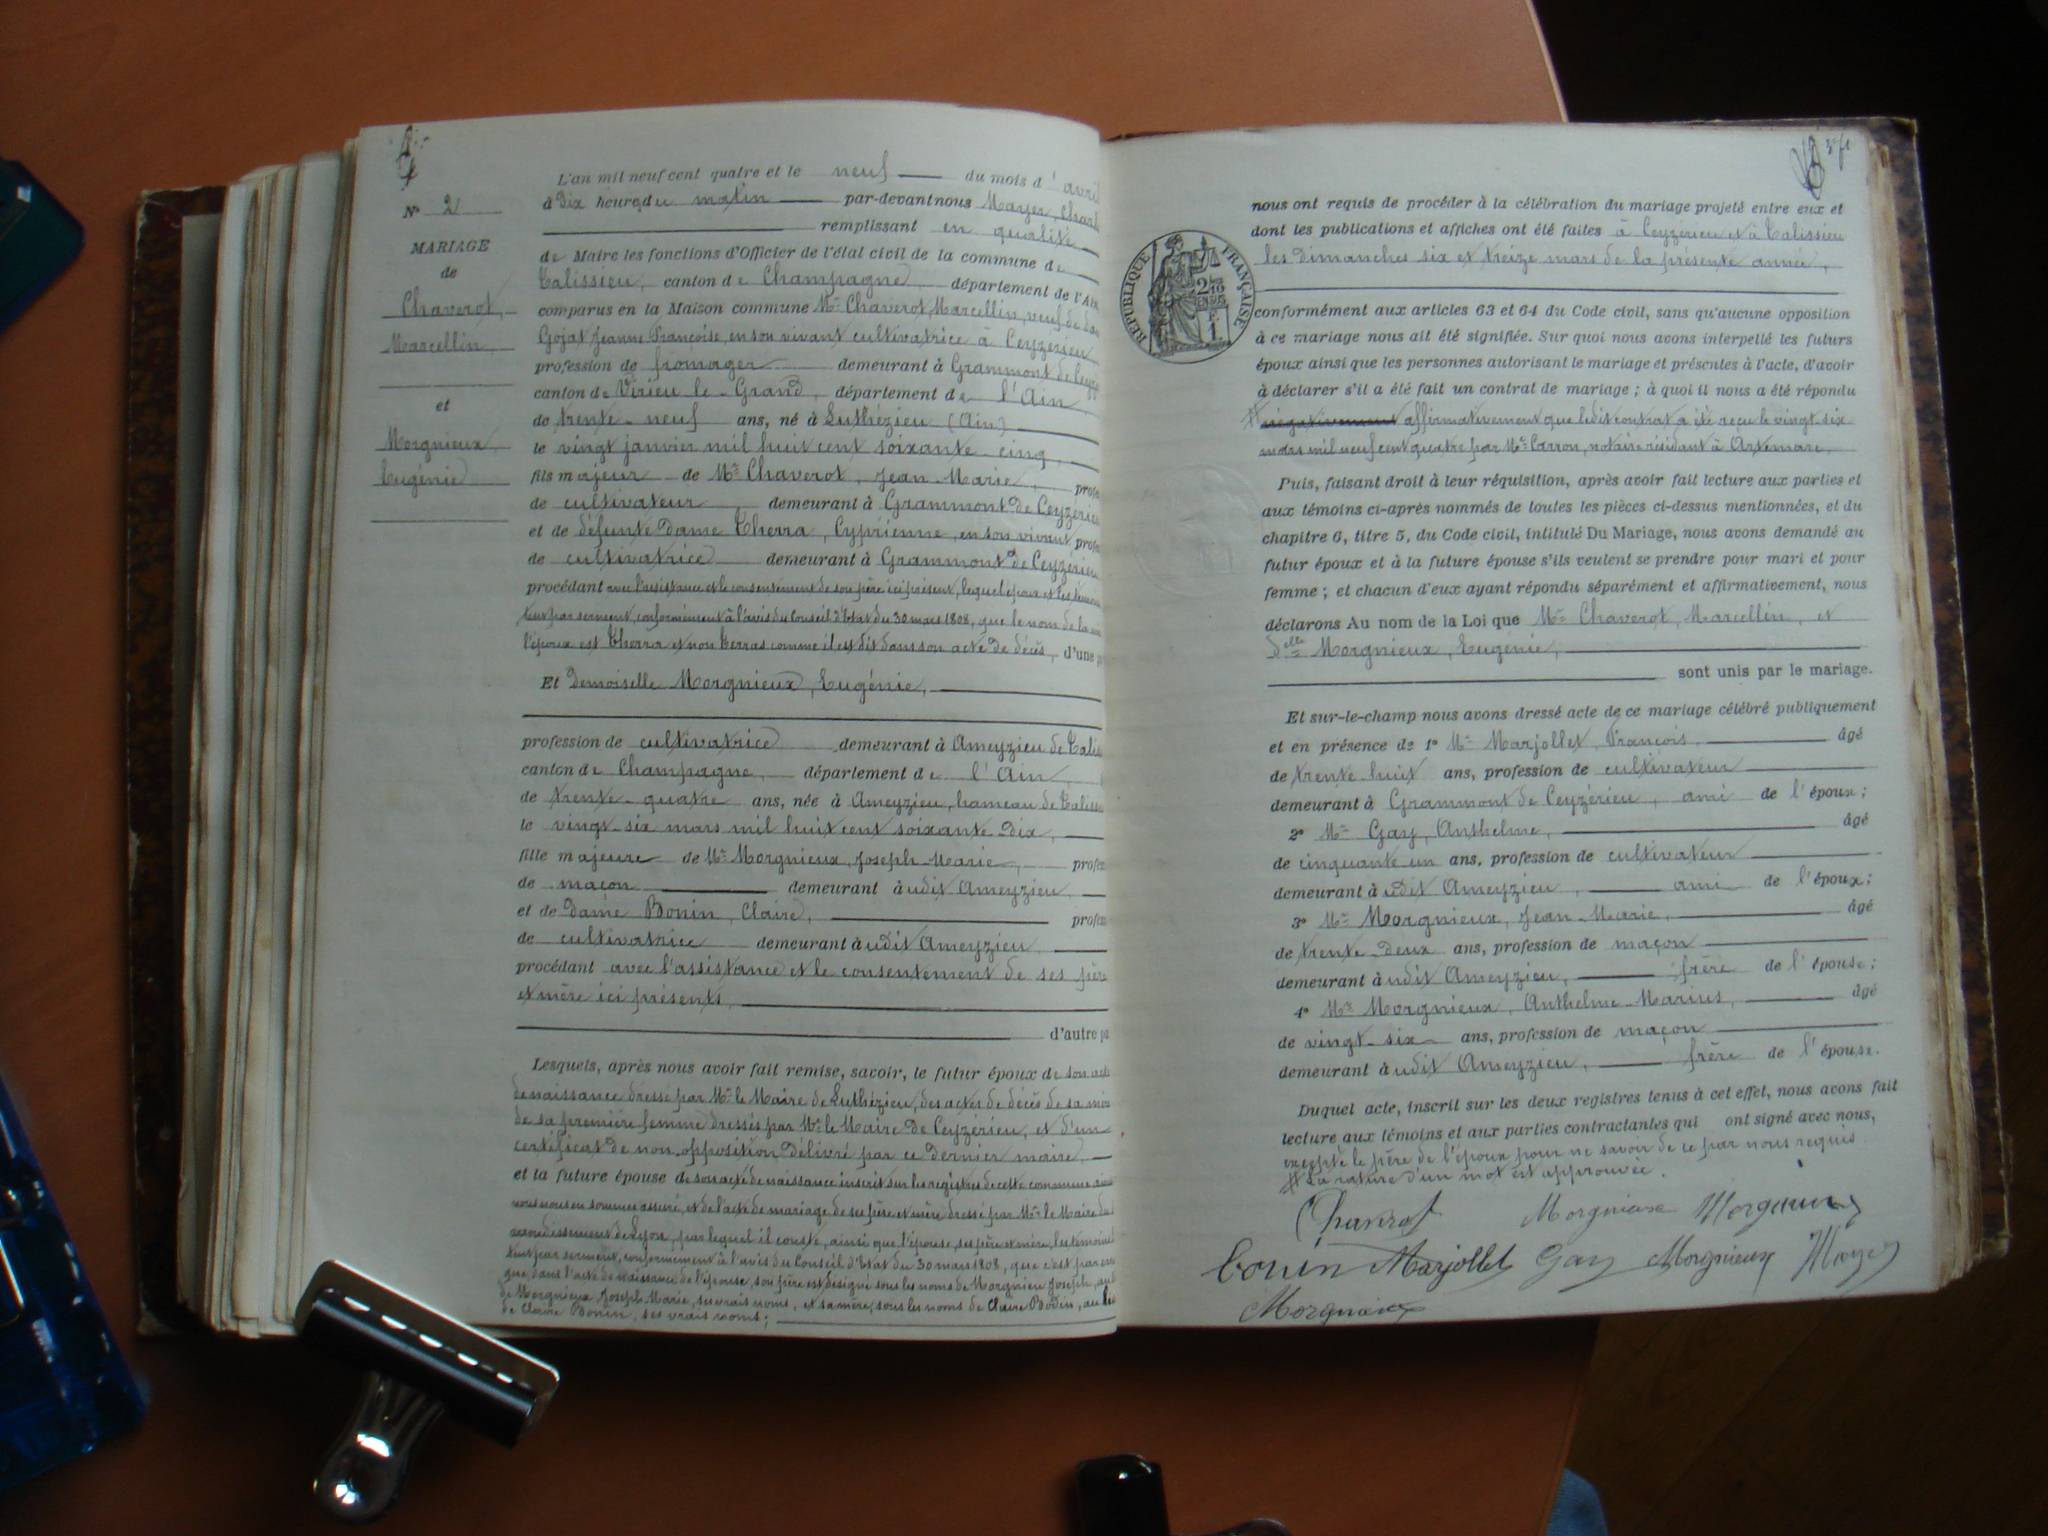 N° 2
MARIAGE
de
Chaverot,
Marcellin,
et
Morgnieux,
Eugénie
L'an mil neuf cent quatre et le neuf du mois d'avril
à Dix heures du matin par-devant nous Mayer, Charl
remplissant en qualité
de Maire les fonctions d'Officier de l'état civil de la commune de
Talissieu, canton de Champagne, département de l'Ain
comparus en la Maison commune Mr Chaverot, Marcellin, veuf de
Gojat Jeanne Françoise, en son vivant cultivatrice à Ceyzérieu
profession de fromager demeurant à Grammont de Ceyz
canton de Virieu-le-Grand, département de l'Ain,
de trente-neuf ans, né à Luthézieu (Ain)
le vingt janvier mil huit cent soixante-cinq,
fils majeur de Mr Chaverot, Jean-Marie, profe
de cultivateur demeurant à Grammont de Ceyzérieu
et de défunte Dame Therra, Cyprienne, en son vivant profe
de cultivatrice demeurant à Grammont de Ceyzérieu
procédant avec l'assistance et le consentement de son père ici présent, lequel époux et les témoins
tent par serment, conformément à l'avis du Conseil d'Etat du 30 mars 1808, que le nom de la
l'époux est Therra et non Terras comme il est dit dans son acte de décès, d'une p
Et Demoiselle Morgnieux, Eugénie,
profession de cultivatrice demeurant à Ameyzieu de Talis
canton de Champagne, département de l'Ain,
de trente-quatre ans, née à Ameyzieu, hameau de Talissi
le vingt-six mars mil huit cent soixante-dix,
fille majeure de Mr Morgnieux, Joseph-Marie, profes
de maçon demeurant àudit Ameyzieu
et de Dame Bonin, Claire, profes
de cultivatrice demeurant àudit Ameyzieu
procédant avec l'assistance et le consentement de ses père
et mère ici présents,
d'autre pa
Lesquels, après nous avoir fait remise, savoir, le futur époux de son acte
de naissance dressé par Mr le Maire de Luthézieu, des actes de décès de sa mère
de sa première femme dressés par Mr le Maire de Ceyzérieu, et d'un
certificat de non-opposition délivré par ce dernier maire,
et la future épouse de son acte de naissance inscrit sur les registres de cette commune ainsi
nous nous en sommes assuré, et de l'acte de mariage de ses père et mère dressé par Mr le Maire du
arrondissement de Lyon, par lequel il conste, ainsi que l'épouse, ses père et mère, les témoins
tent par serment, conformément à l'avis du Conseil d'Etat du 30 mars 1808, que c'est par
que, dans l'acte de naissance de l'épouse, son père est désigné sous les noms de Morgnieu Joseph, au l
de Morgnieux Joseph Marie, ses vrais noms, et sa mère, sous les noms de Claire Bodin, au lieu
de Claire Bonin, ses vrais noms;
nous ont requis de procéder à la célébration du mariage projeté entre eux et
dont les publications et affiches ont été faites à Ceyzérieu et à Talissieu
les dimanches six et treize mars de la présente année,
RÉPUBLIQUE FRANÇAISE
conformément aux articles 63 et 64 du Code civil, sans qu'aucune opposition
à ce mariage nous ait été signifiée. Sur quoi nous avons interpellé les futurs
époux ainsi que les personnes autorisant le mariage et présentes à l'acte, d'avoir
à déclarer s'il a été fait un contrat de mariage ; à quoi il nous a été répondu
# négativement affirmativement que ledit contrat a été reçu le vingt-six
mars mil neuf cent quatre par Me Carron, notaire résidant à Artemare.
Puis, faisant droit à leur réquisition, après avoir fait lecture aux parties et
aux témoins ci-après nommés de toutes les pièces ci-dessus mentionnées, et du
chapitre 6, titre 5, du Code civil, intitulé Du Mariage, nous avons demandé au
futur époux et à la future épouse s'ils veulent se prendre pour mari et pour
femme ; et chacun d'eux ayant répondu séparément et affirmativement, nous
déclarons Au nom de la Loi que Mr Chaverot, Marcellin, et
Delle Morgnieux, Eugénie,
sont unis par le mariage.
Et sur-le-champ nous avons dressé acte de ce mariage célébré publiquement
et en présence de 1° Mr Marjollet, François, âgé
de trente-huit ans, profession de cultivateur
demeurant à Grammont de Ceyzérieu, ami de l'époux ;
2° Mr Gay, Anthelme, âgé
de cinquante-un ans, profession de cultivateur
demeurant àudit Ameyzieu, ami de l'époux ;
3° Mr Morgnieux, Jean-Marie, âgé
de trente-deux ans, profession de maçon
demeurant àudit Ameyzieu, frère de l'épouse ;
4° Mr Morgnieux, Anthelme-Marius, âgé
de vingt-six ans, profession de maçon
demeurant àudit Ameyzieu, frère de l'épouse.
Duquel acte, inscrit sur les deux registres tenus à cet effet, nous avons fait
lecture aux témoins et aux parties contractantes qui ont signé avec nous,
excepté le père de l'époux pour ne savoir de ce par nous requis
# La rature d'un mot est approuvée.
Chaverot Morgnieux Morgnieux
Bonin Marjollet Gay Morgnieux Mayer
Morgnieux